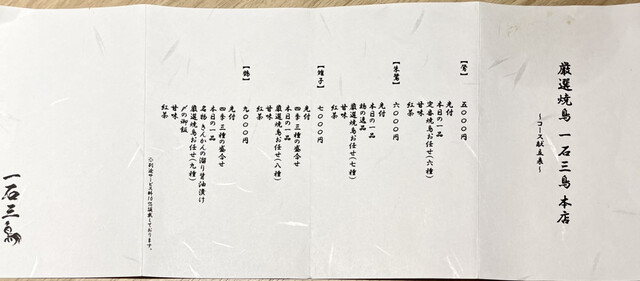 厳選焼鳥 一石三鳥 本店
～コース献立表～
【鶯】 五〇〇〇円
先付
本日の一品
定番焼鳥お任せ(六種)
甘味
紅茶
【朱鷺】 六〇〇〇円
先付
本日の一品
箸の逸品
厳選焼鳥お任せ(七種)
甘味
紅茶
【雉子】 七〇〇〇円
先付
四季 三種の盛合せ
本日の一品
厳選焼鳥お任せ(八種)
甘味
紅茶
【鶴】 九〇〇〇円
先付
四季 三種の盛合せ
本日の一品
名物 きんかんの溜り醤油漬け
厳選焼鳥お任せ(九種)
〆の御飯
甘味
紅茶
◎別途サービス料10%頂戴しております。
一石三鳥